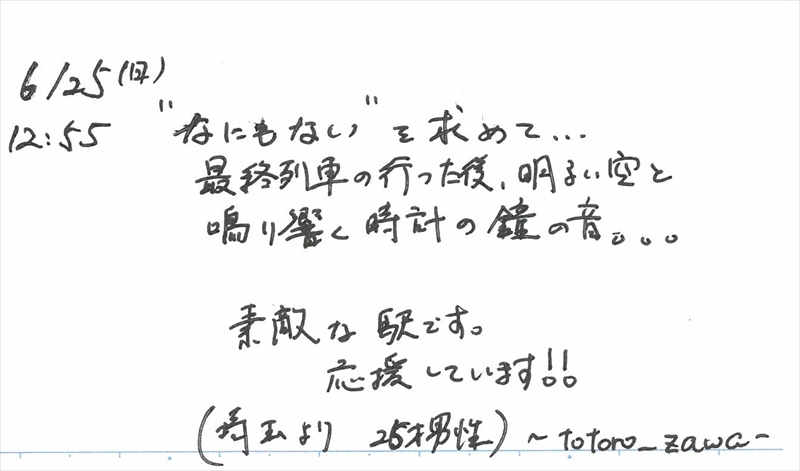 6/25(日)
12:55 "なにもない"を求めて...
最終列車の行った後、明るい空と
鳴り響く時計の鐘の音。。。
素敵な駅です。
応援しています!!
(埼玉より 25才男性) ~totoro_zawa~